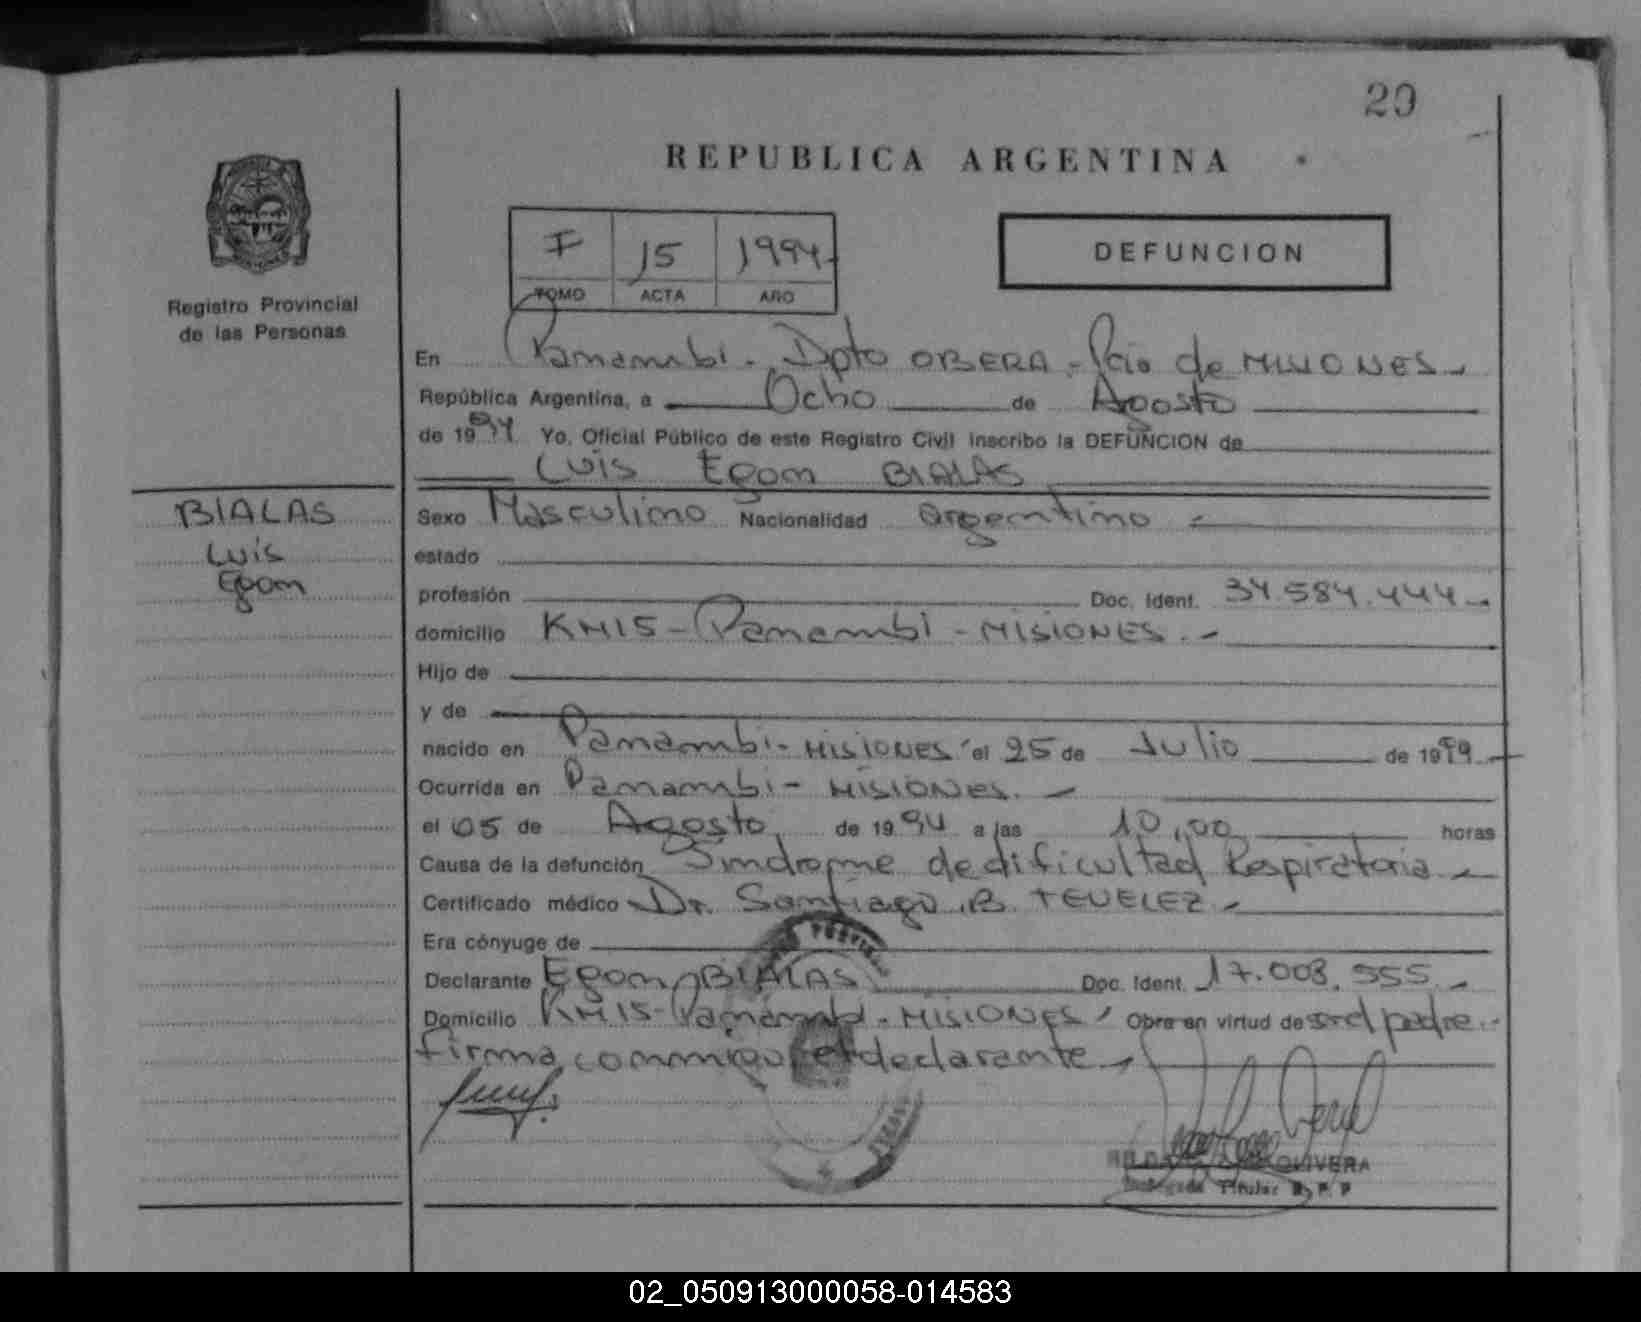 20
REPUBLICA ARGENTINA
I 15 1994
TOMO ACTA AÑO
DEFUNCION
Registro Provincial
de las Personas
En Panambi - Dpto OBERA - Pcia de MISIONES -
República Argentina, a Ocho de Agosto
de 1994 Yo, Oficial Público de este Registro Civil inscribo la DEFUNCION de
Luis Egon BIALAS
BIALAS
Luis
Egon
Sexo Masculino Nacionalidad argentino -
estado
profesión Doc. Ident. 34.584.444 -
domicilio KM15 - Panambi - MISIONES. -
Hijo de
y de
nacido en Panambi - MISIONES el 25 de Julio de 19
Ocurrida en Panambi - MISIONES. -
el 05 de Agosto de 1994 a las 10,00 horas
Causa de la defunción Sindrome de dificultad Respiratoria -
Certificado médico Dr. Santiago B. TEVELEZ -
Era cónyuge de
Declarante Egon BIALAS Doc. Ident. 17.003.555 -
Domicilio KM15 - Panambi - MISIONES Obra en virtud de ser el padre -
firma conmigo el declarante -
OLIVERA
Titular R. P. P
02_050913000058-014583